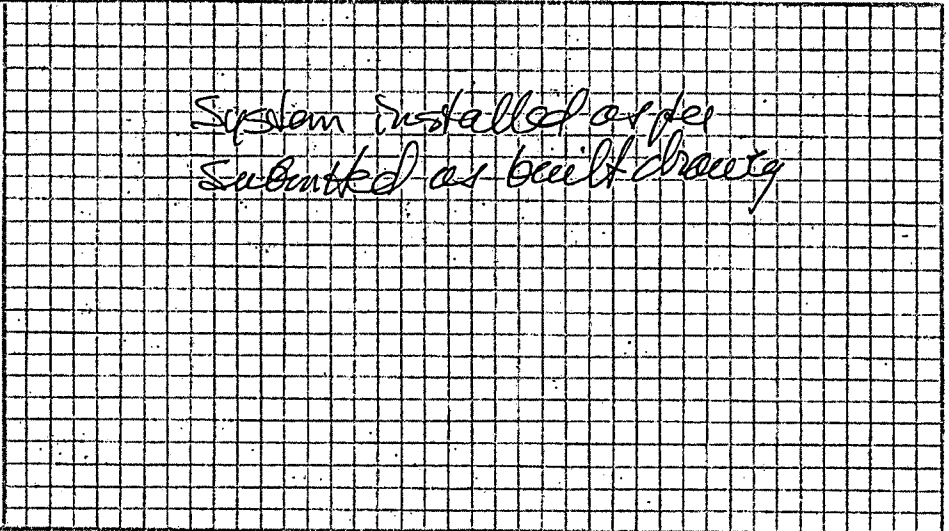 System installed as per
submitted as built drawing